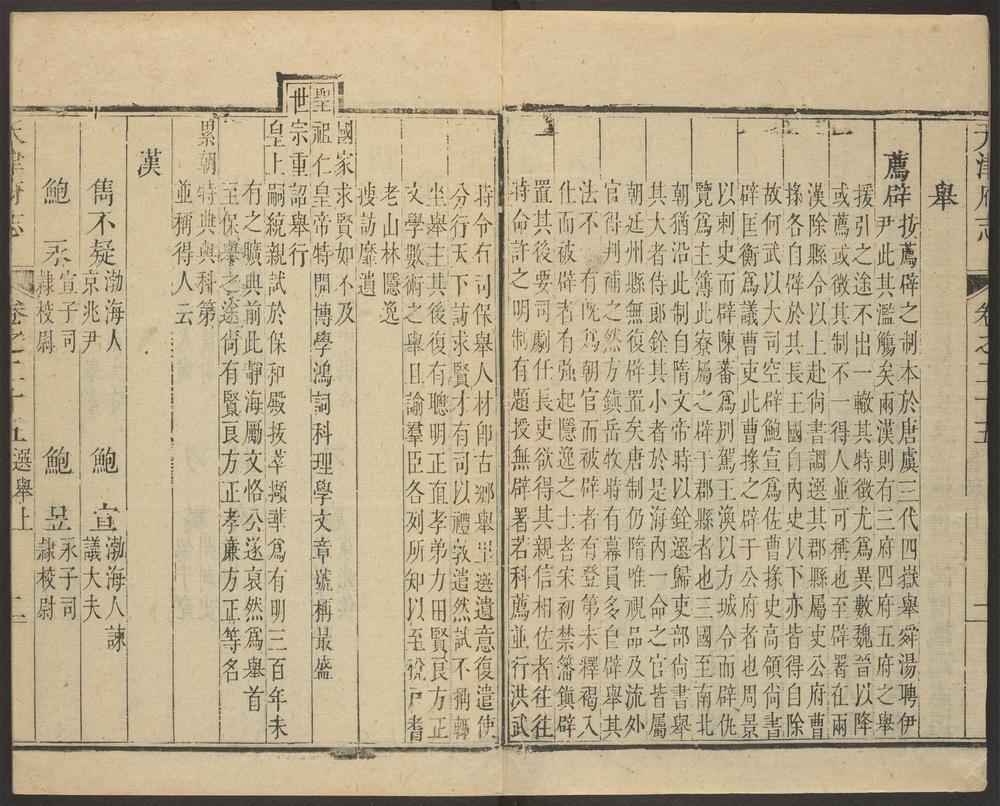 天津府志
卷之二十五
一
舉
薦辟按薦辟之制本於唐虞三代四嶽舉舜湯聘伊
尹此其濫觴矣兩漢則有三府四府五府之舉
援引之途不出一轍其特徵尤爲異數魏晉以降
或薦或徵其制不一得人並可稱也至辟署在兩
漢除縣令以上赴尚書調選其郡縣屬吏公府曹
掾各自辟於其長王國自內史以下亦皆得自除
故何武以大司空辟鮑宣爲佐曹掾史高領尚書
辟匡衡爲議曹史此曹掾之辟于公府者也周景
以刺史而辟陳蕃爲別駕王渙以方城令而辟仇
覽爲主簿此寮屬之辟于郡縣者也三國至南北
朝猶沿此制自隋文帝時以銓選歸吏部尚書舉
其大者侍郎銓其小者於是海內一命之官皆屬
朝廷州縣無復辟置矣唐制仍隋唯視品及流外
官得判補之然方鎮岳牧時有幕員多自辟舉其
法不一有既爲朝官而被辟者有登第未釋褐入
仕而被辟者有強起隱逸之士者宋初禁籓鎮辟
置其後要司劇任長吏欲得其親信相佐者往往
特命許之明制有題授無辟署若科薦並行洪武
時令有司保舉人材即古鄉舉里選遺意復遣使
分行天下訪求賢才有司以禮敦遣然試不稱輒
坐舉主其後復有聰明正直孝弟力田賢良方正
文學數術之舉且諭羣臣各列所知以至稅戶耆
老山林隱逸
搜訪靡遺
國家求賢如不及
聖祖仁皇帝特開博學鴻詞科理學文章號稱最盛
世宗重詔舉行
皇上嗣統親試於保和殿拔萃擷華爲有明三百年未
有之曠典前此靜海勵文恪公遂裒然爲舉首
至保舉之途尚有賢良方正孝廉方正等名
累朝特典與科第
並稱得人云
漢
雋不疑渤海人
京兆尹
鮑宣渤海人諫
議大夫
鮑永宣子司
隸校尉
鮑昱永子司
隸校尉
天津府志
卷之二十五選舉上
二